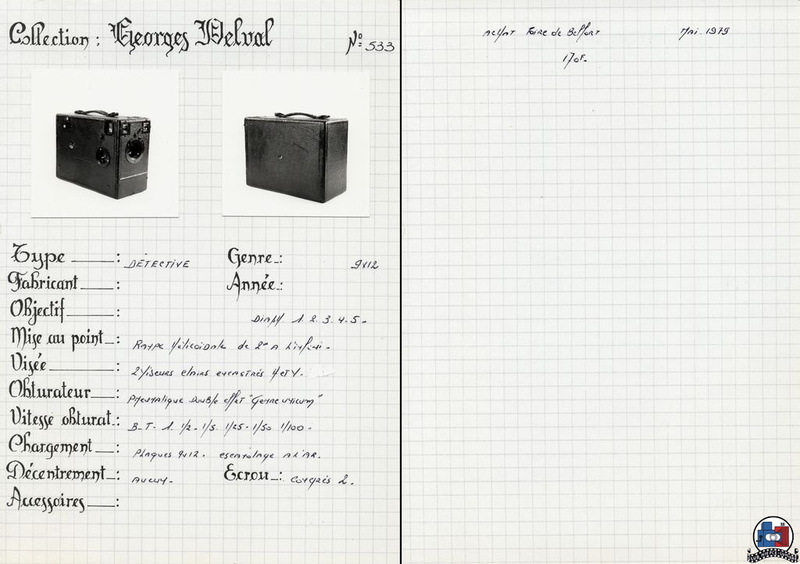 Collection : Georges Delval
N° 533
Type : DÉTECTIVE Genre : 9x12
Fabricant : Année :
Objectif : Diaph 1. 2. 3. 4. 5.
Mise au point : Rampe hélicoidale de 2m à l'infini.
Visée : 2 Viseurs clairs encastrés H et V.
Obturateur : Pneumatique double effet "Germanicum"
Vitesse obturat. : B. T. 1. 1/2. 1/5. 1/25. 1/50 1/100.
Chargement : Plaques 9x12. escamotage
Décentrement : Aucun. Ecrou : Congrès 2.
Accessoires :
Achat Foire de Belfort Mai. 1979
170F.